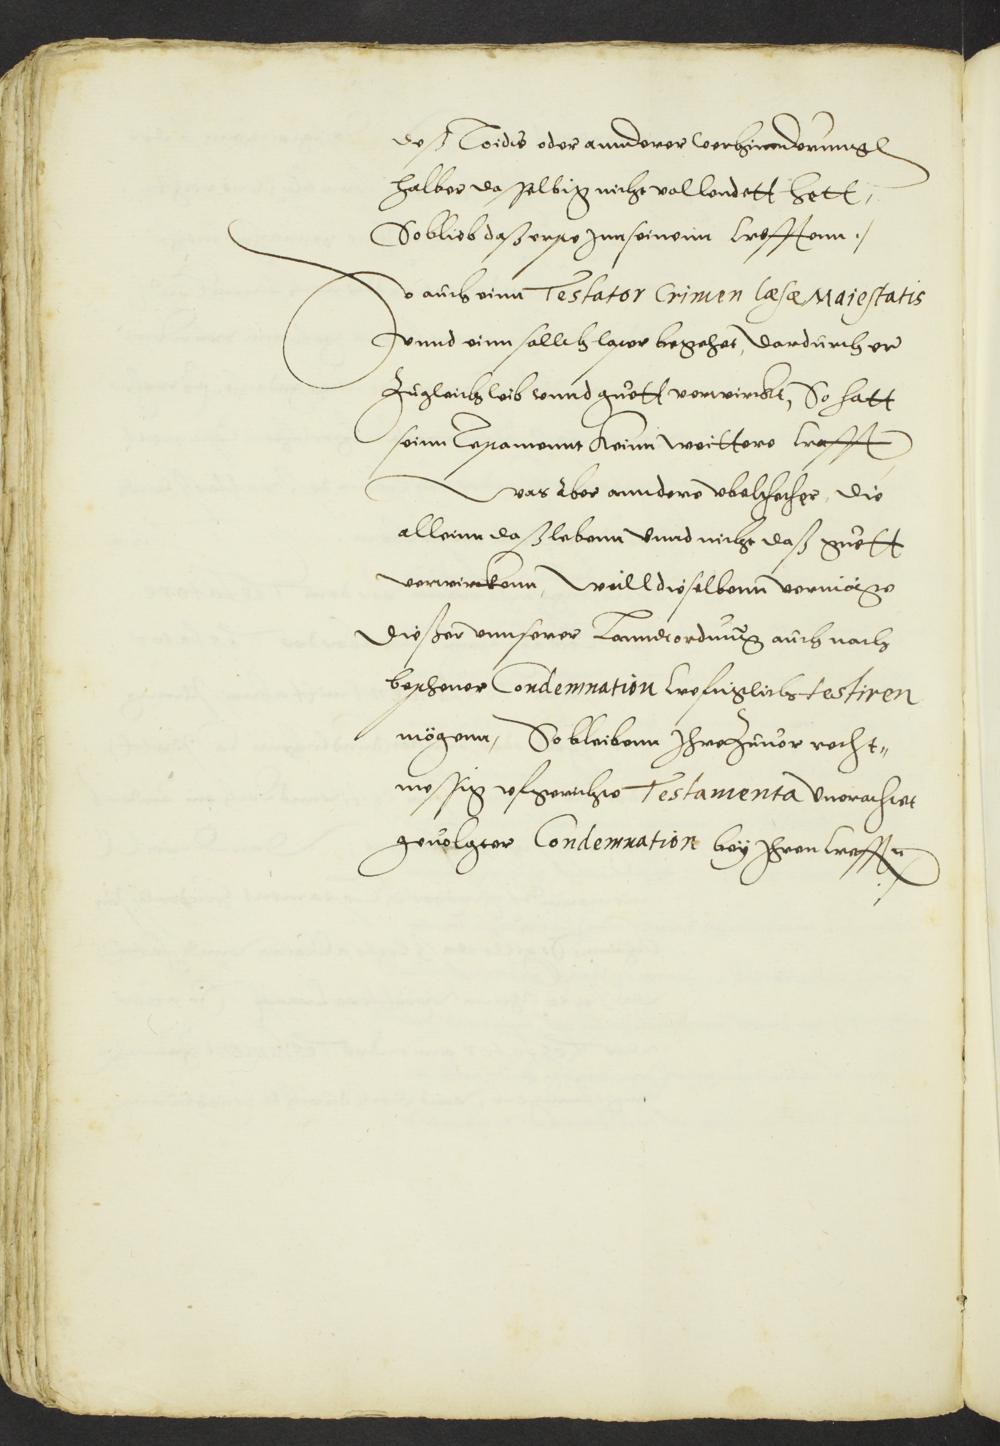 deß Toidts oder annderer verhinnderunng
halber dasselbig nicht vollendett hett,
So blieb daß erste Inn seinenn krefftenn ./
So auch einn Testator Crimen læsæ Maiestatis
unnd einn sollch laster begehet, dardurch er
Zugleich leib unnd guett verwirckt, So hatt
sein Testamennt keinn weittere krafft
Was aber anndere ubelthether, die
alleinn daß lebenn unnd nicht daß guett
verwirckenn, Weill dieselbenn vermöge
dießer unnserer Lanndtordnung auch nach
beschener Condemnation krefftiglich testiren
mögenn, So bleibenn Ihre Zuvor recht„
messig ufgerichte Testamenta unerachtet
gevolgter Condemnation bey Ihren krefften